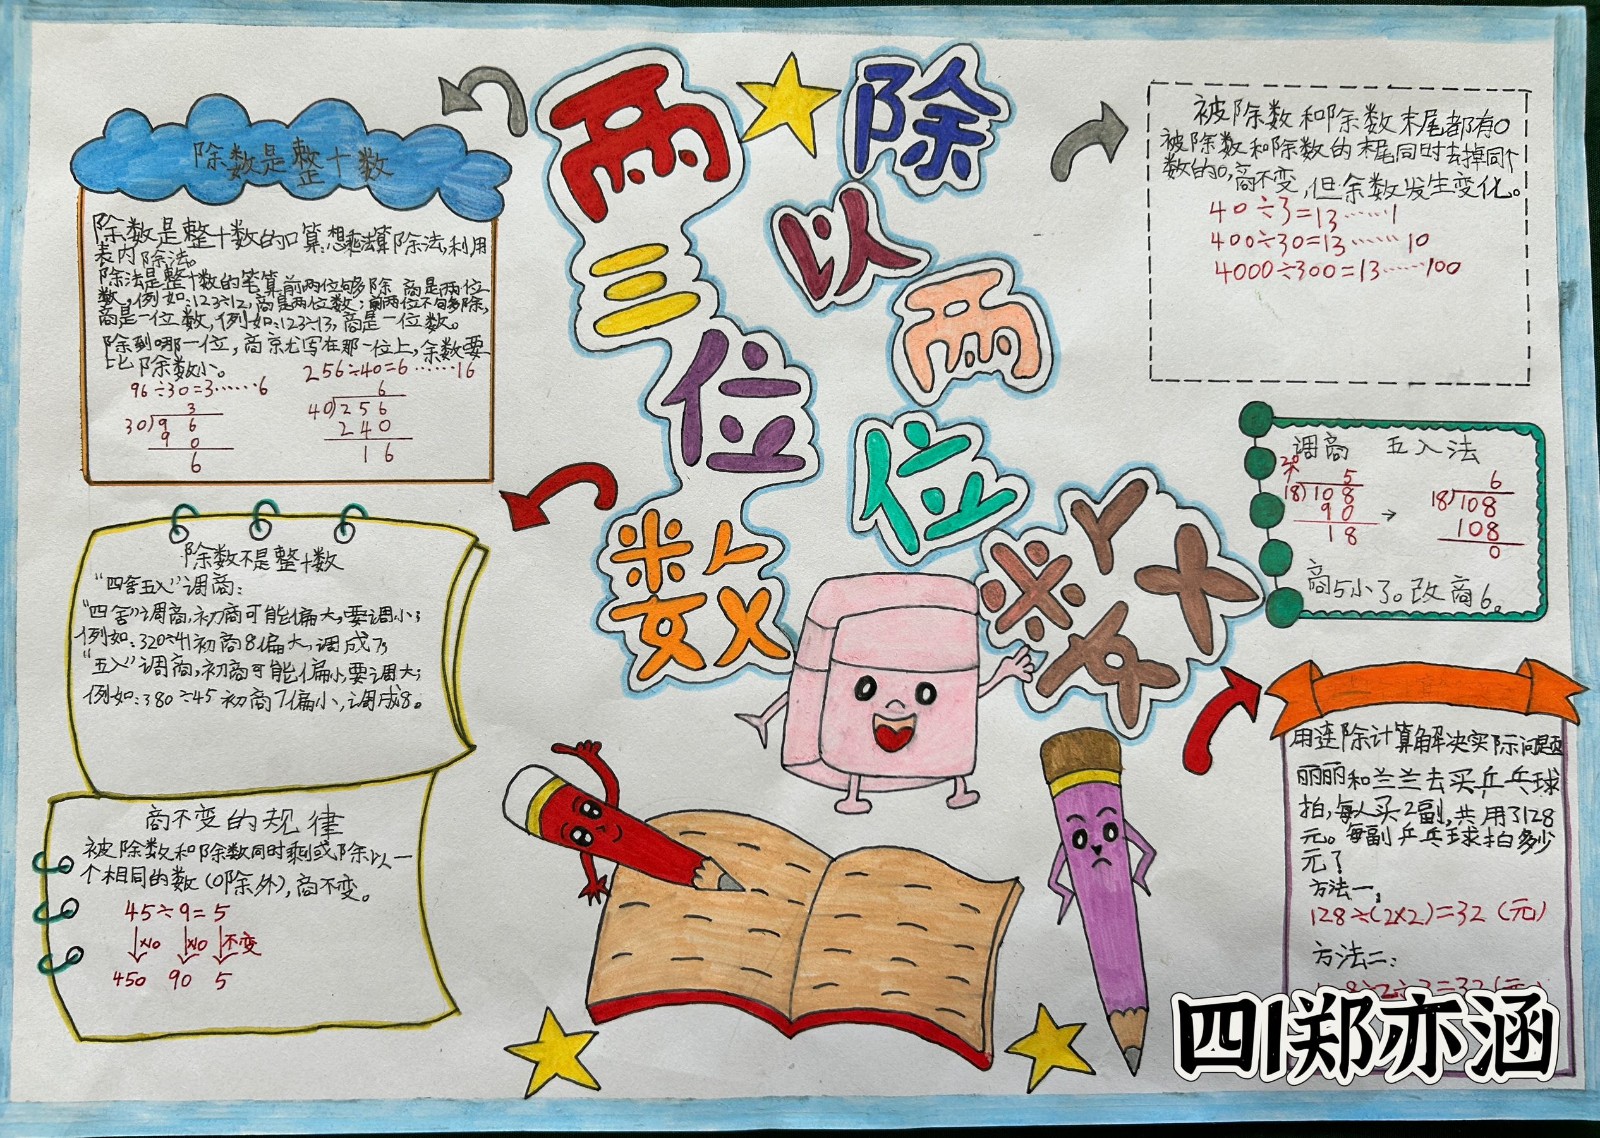 两三位数
除以两位数
除数是整十数
除数是整十数的口算:想乘法算除法,利用
表内除法。
除法是整十数的笔算前两位够除,商是两位
数,例如:123÷12,商是两位数;前两位不够除,
商是一位数,例如:123÷13,商是一位数。
除到哪一位,商就写在那一位上,余数要
比除数小。
96÷30=3……6
3
30)96
90
6
256÷40=6……16
6
40)256
240
16
除数不是整十数
“四舍五入”调商:
“四舍”调商,初商可能偏大,要调小;
例如:320÷41初商8偏大,调成7;
“五入”调商,初商可能偏小,要调大;
例如:380÷45初商7偏小,调成8。
商不变的规律
被除数和除数同时剩或除以一
个相同的数(0除外),商不变。
45÷9=5
×10 ×10 不变
450 90 5
被除数和除数末尾都有0
被除数和除数的末尾同时去掉同个
数的0,商不变,但余数发生变化。
40÷3=13……1
400÷30=13……10
4000÷300=13……100
调商 五入法
20
5
18)108
90
18
6
18)108
108
0
商5小了。改商6。
用连除计算解决实际问题
丽丽和兰兰去买乒乓球
拍,每人买2副,共用了128
元。每副乒乓球拍多少
元?
方法一:
128÷(2×2)=32(元)
方法二:
8÷2÷2=32(元)
四1郑亦涵